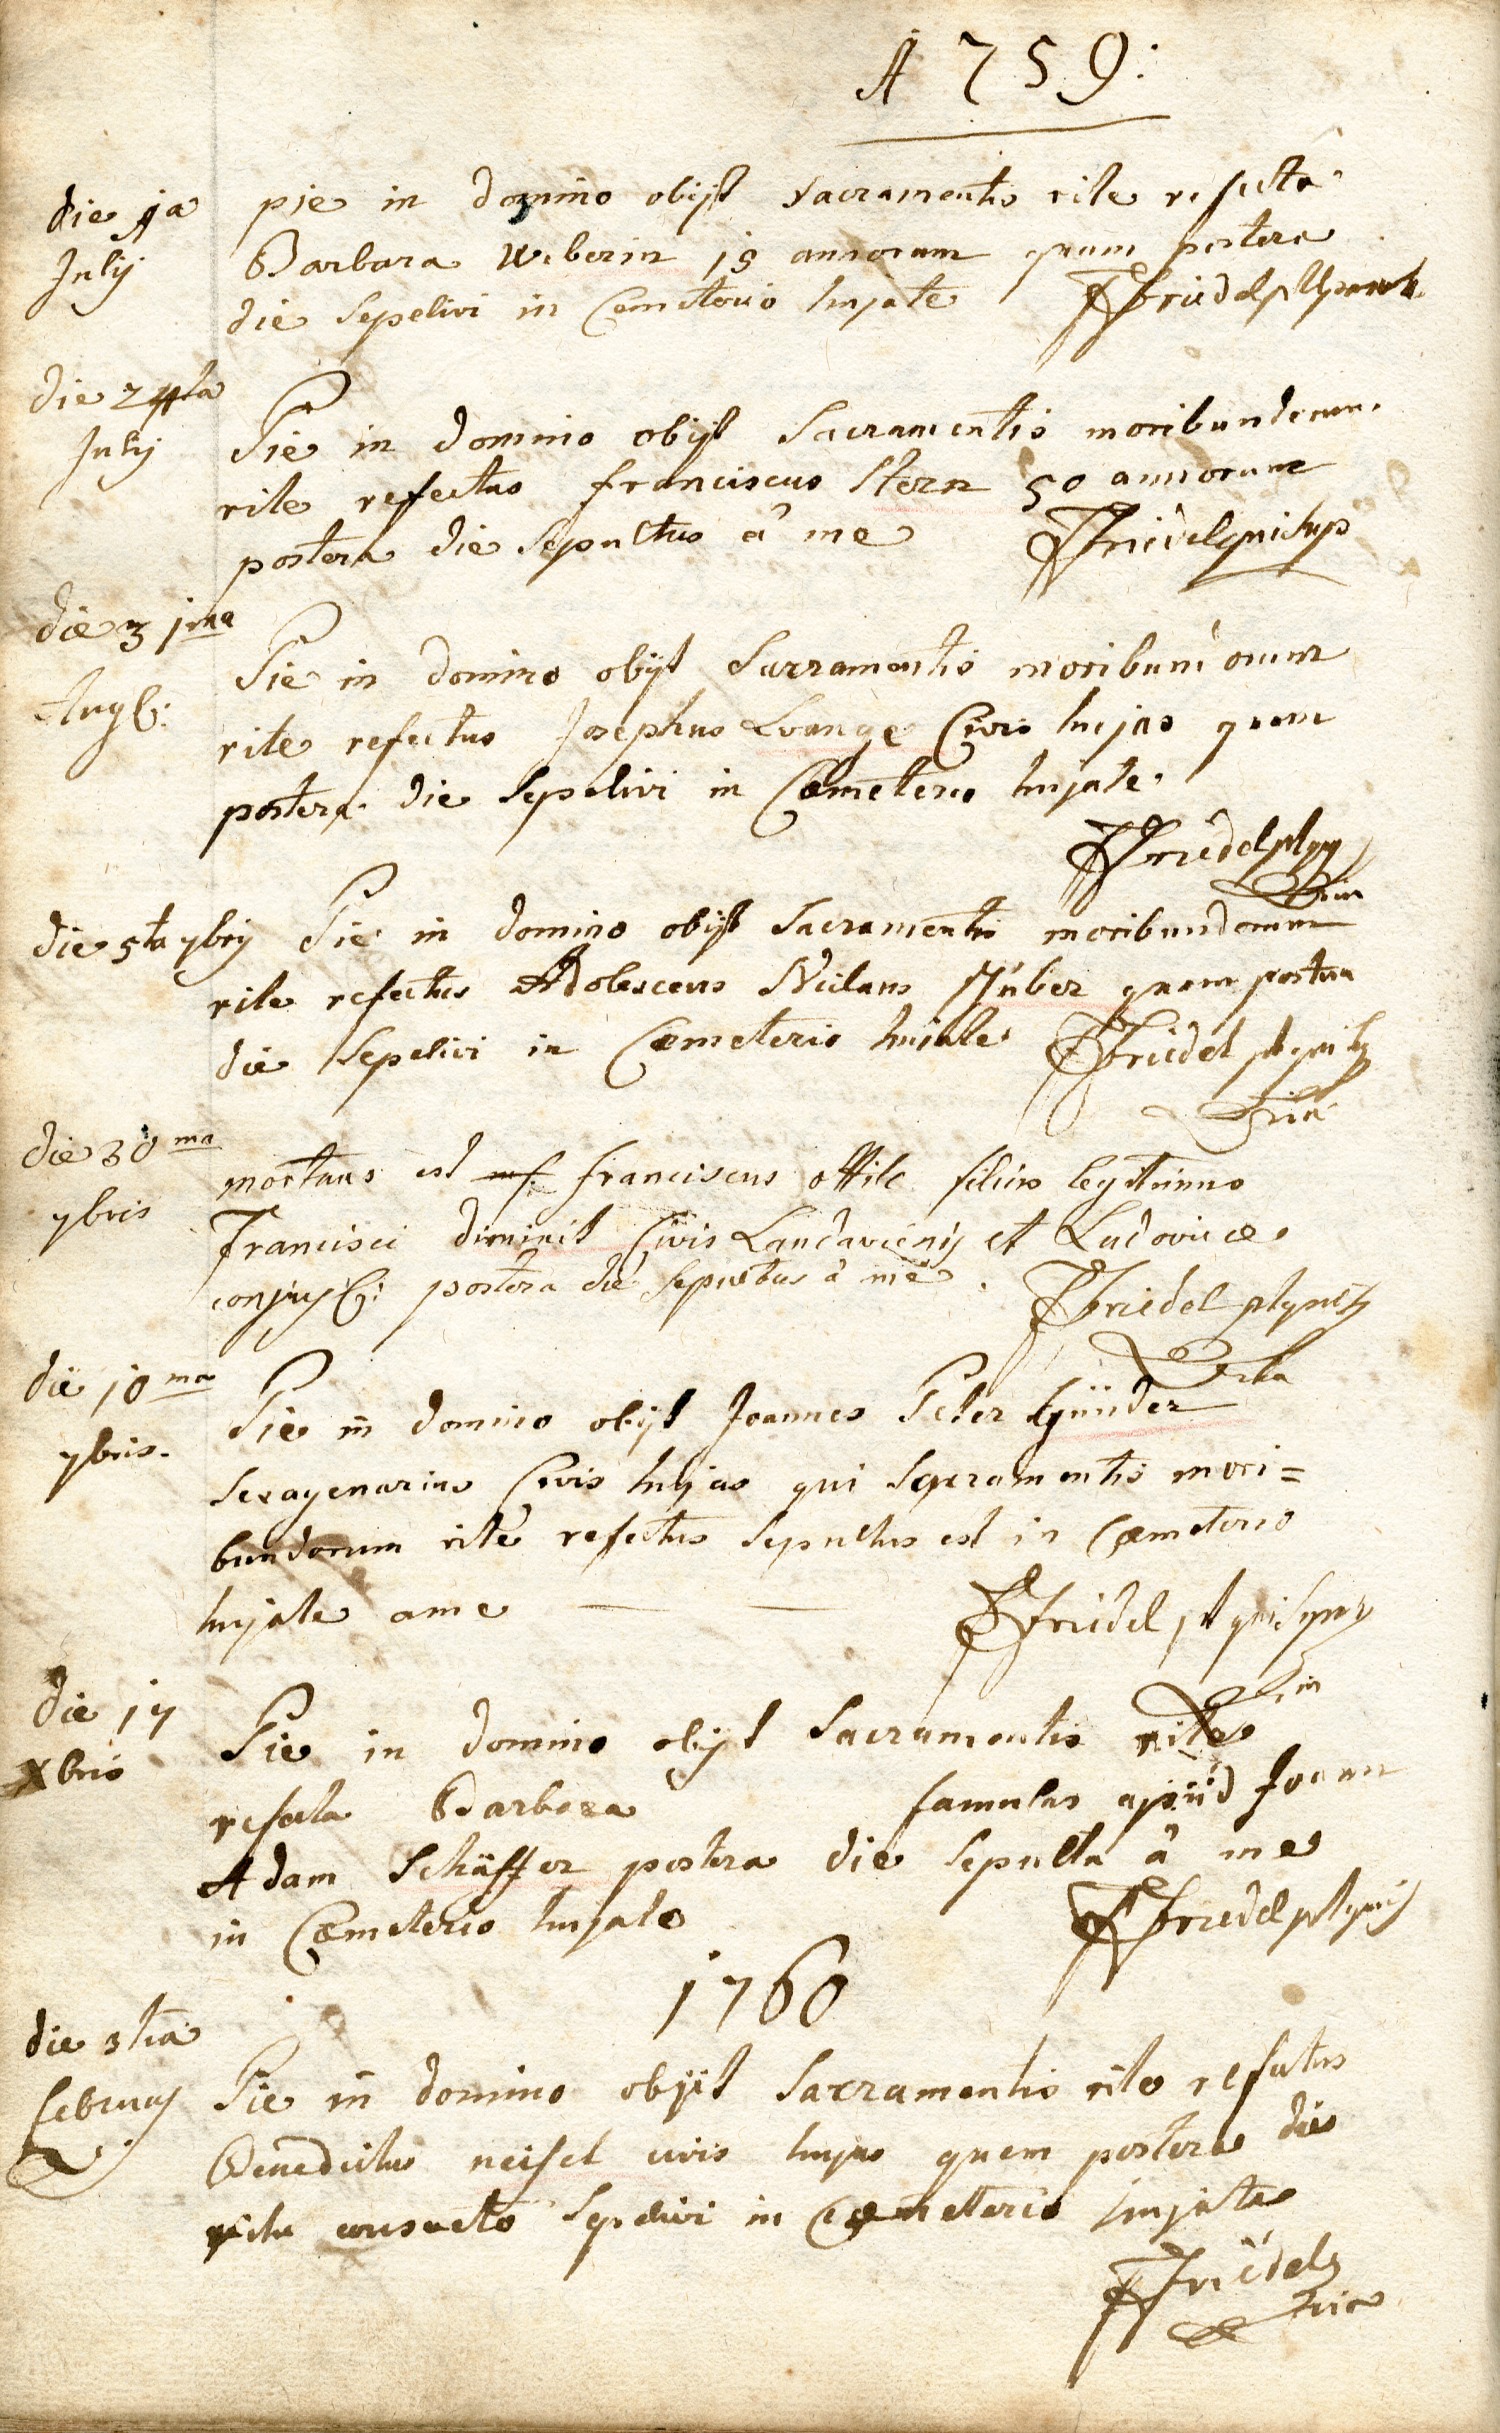 A 759:
die 1a pie in domino obijt Sacramentis rite refecta
July Barbara Weberin 19 annorum quam postera
die Sepelivi in Cæmeterio hujate FFriedel
die 24ta
July Pie in domino obijt Sacramentis moribundorum
rite refectus franciscus Stern 50 annorum
postera die Sepultus á me FFriedel
die 31ma
Aug: Pie in domino obijt Sacramentis moribundorum
rite refectus Josephus Lvange Civis hujas quem
postera die Sepelivi in Cæmeterio hujate
FFriedel
die 5ta 7bris Pie in domino obijt Sacramentis moribundorum
rite refectus Adolescens Niclaus Huber quem postera
die Sepelivi in Cæmeterio hujate FFriedel
die 30ma
7bris mortuus est franciscus filius legitimus
Francisci Civis Landaviensis et Ludovicæ
conjug: postera die Sepultus á me FFriedel
die 10ma
7bris Pie in domino obijt Joannes Peter Günder
Sexagenarius Civis hujas qui Sacramentis mori=
bundorum rite refectus Sepultus est in Cæmeterio
hujate a me FFriedel
die 17 Pie in domino obijt Sacramentis rite
Xbris refecta Barbara famulas apud Joann
Adam Schäffer postera die Sepulta á me
in Cæmeterio hujate FFriedel
1760
die 3tia
februarj Pie in domino obijt Sacramentis rite refectus
Benedictus neisel civis hujas quem postera die
ritu consueto Sepelivi in Cæmeterio hujate
FFriedel